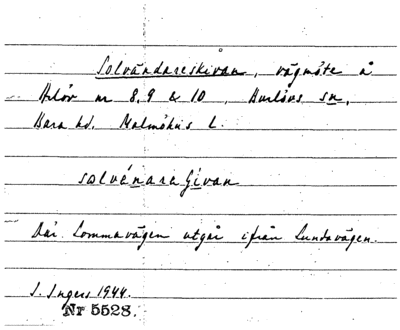 Solvändareskivan, vägmöte å
Arlöv nr 8, 9 & 10, Burlövs sn,
Bara hd. Malmöhus l.
Där Lommavägen utgår ifrån Lundavägen.
I. Ingers 1944.
Nr 5528.